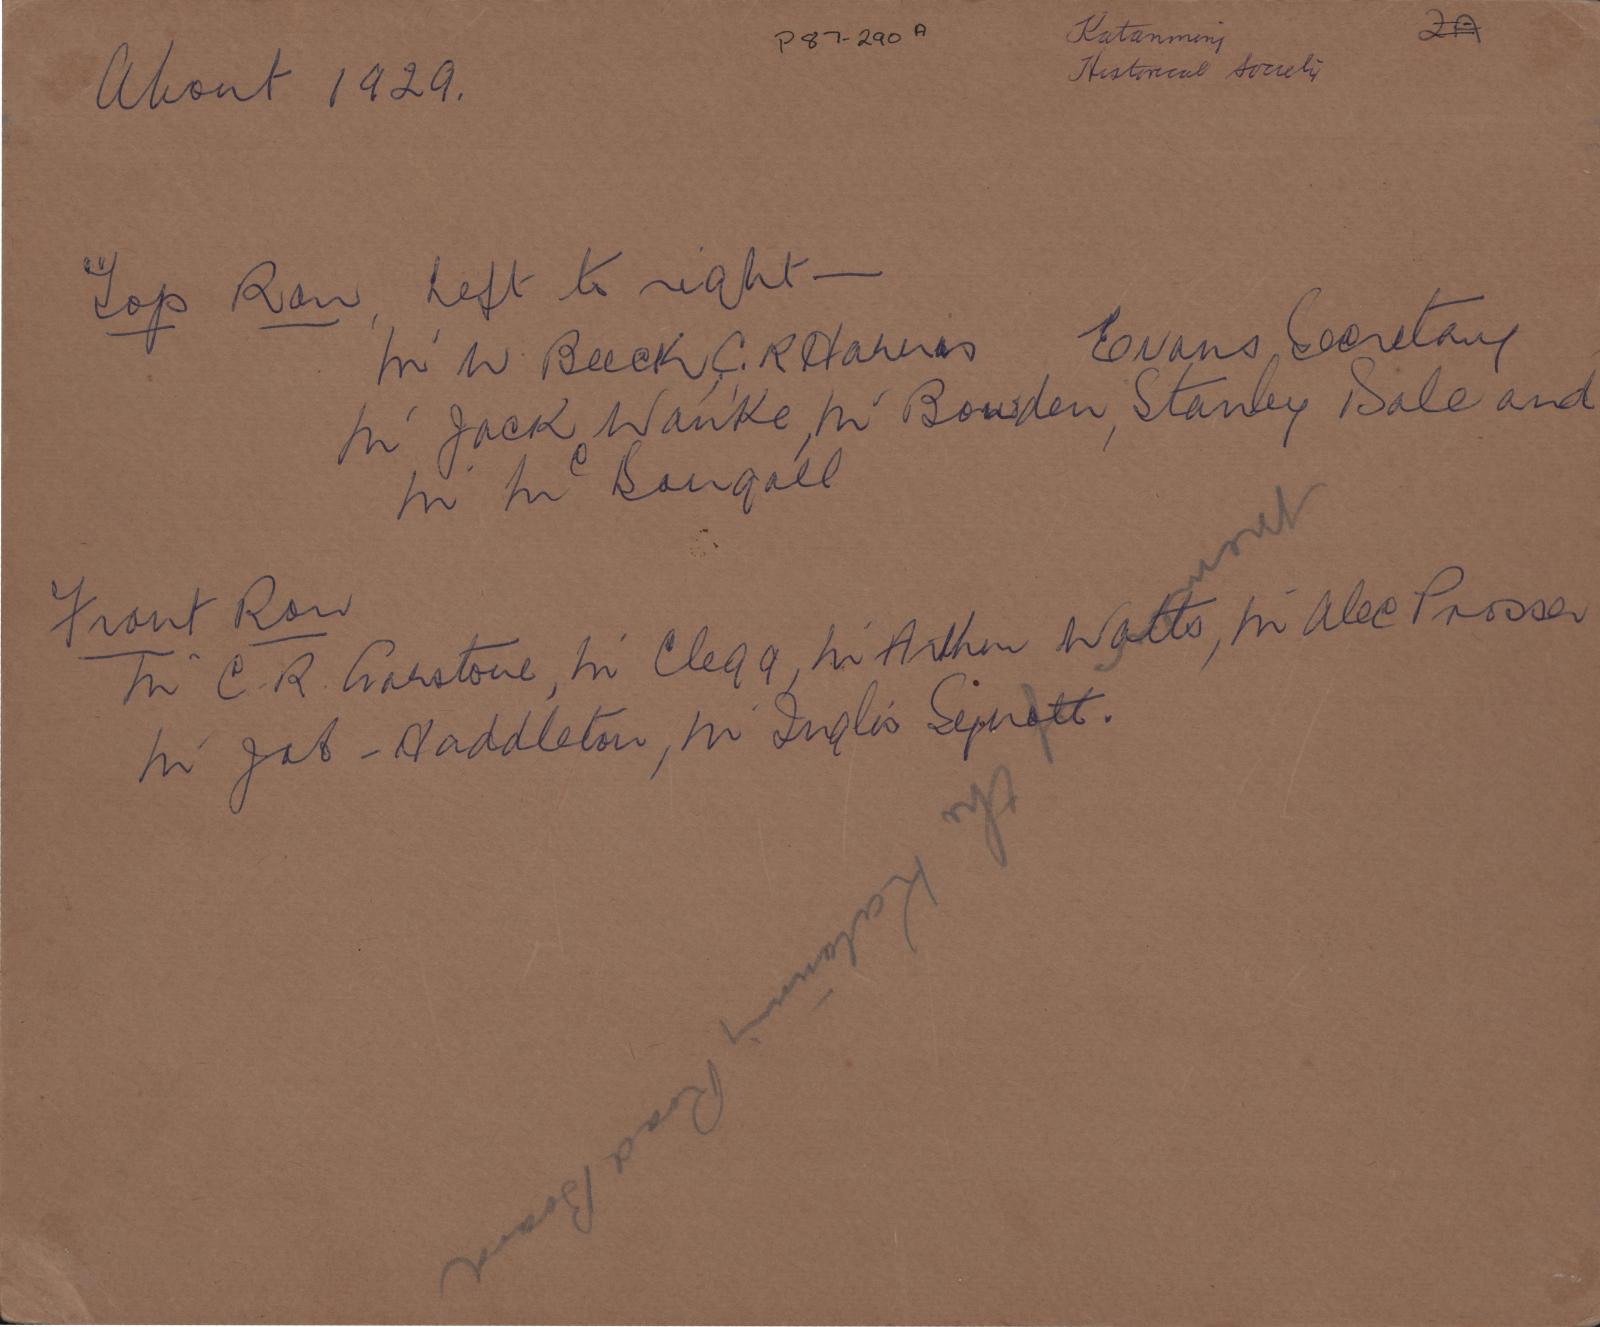 P87-290 A
Katanning
Historical Society
2A
About 1929.
Top Row, Left to right —
Mr W Beeck, C. R Harris Evans, Secretary
Mr Jack Wanke, Mr Bowden, Stanley Bale and
Mr McDougall
Front Row
Mr C. R. Garstone, Mr Clegg, Mr Arthur Watts, Mr Alec Prosser
Mr Jab - Haddleton, Mr Inglis Signott.
of the Katanning Road Board